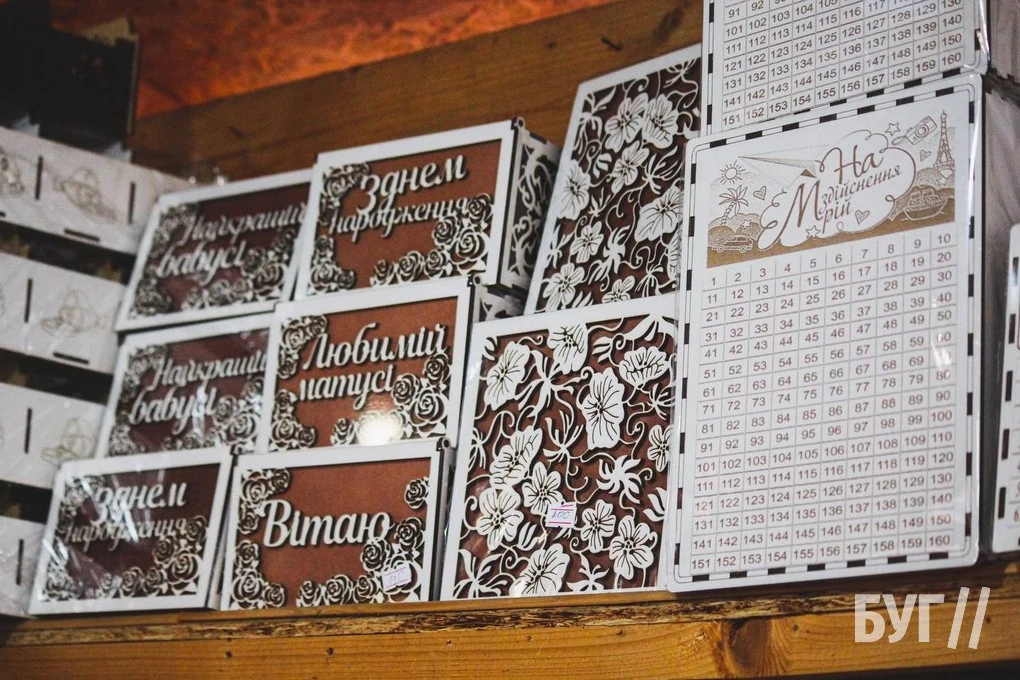 Найкращій
бабусі
З днем
народження
Найкращій
бабусі
Любимій
матусі
З днем
народження
Вітаю
200
91 92 93
101 102 103 104 105
111 112 113 114 115 116 117 118
121 122 123 124 125 126 127 128 129 130
131 132 133 134 135 136 137 138 139 140
141 142 143 144 145 146 147 148 149 150
151 152 153 154 155 156 157 158 159 160
На
здійснення
Мрій
1 2 3 4 5 6 7 8 9 10
11 12 13 14 15 16 17 18 19 20
21 22 23 24 25 26 27 28 29 30
31 32 33 34 35 36 37 38 39 40
41 42 43 44 45 46 47 48 49 50
51 52 53 54 55 56 57 58 59 60
61 62 63 64 65 66 67 68 69 70
71 72 73 74 75 76 77 78 79 80
81 82 83 84 85 86 87 88 89 90
91 92 93 94 95 96 97 98 99 100
101 102 103 104 105 106 107 108 109 110
111 112 113 114 115 116 117 118 119 120
121 122 123 124 125 126 127 128 129 130
131 132 133 134 135 136 137 138 139 140
141 142 143 144 145 146 147 148 149 150
151 152 153 154 155 156 157 158 159 160
БУГ //